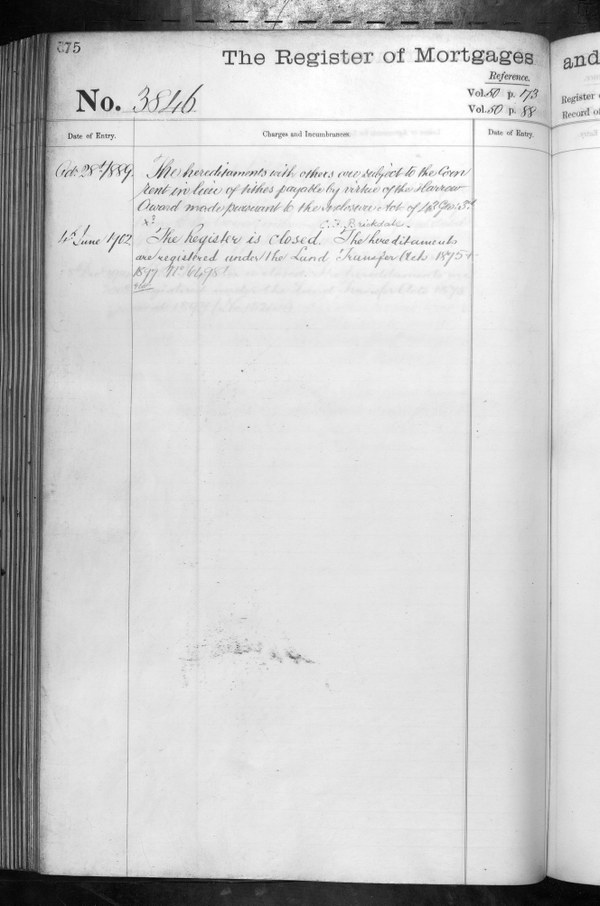 375
The Register of Mortgages
and
Reference.
No. 3846
Vol. 50 p. 173
Vol. 50 p. 88
Register
Record of
Date of Entry.
Charges and Incumbrances.
Date of Entry.
Oct: 28th 1889. The hereditaments with others are subject to the Corn
rent in lieu of tithes payable by virtue of the Harrow
Award made pursuant to the inclosure Act of 43 Geo: 3rd
C. F. Brickdale.
4th June 1902 The Register is closed. The hereditaments
are registered under the Land Transfer Acts 1875 &
1897 No.